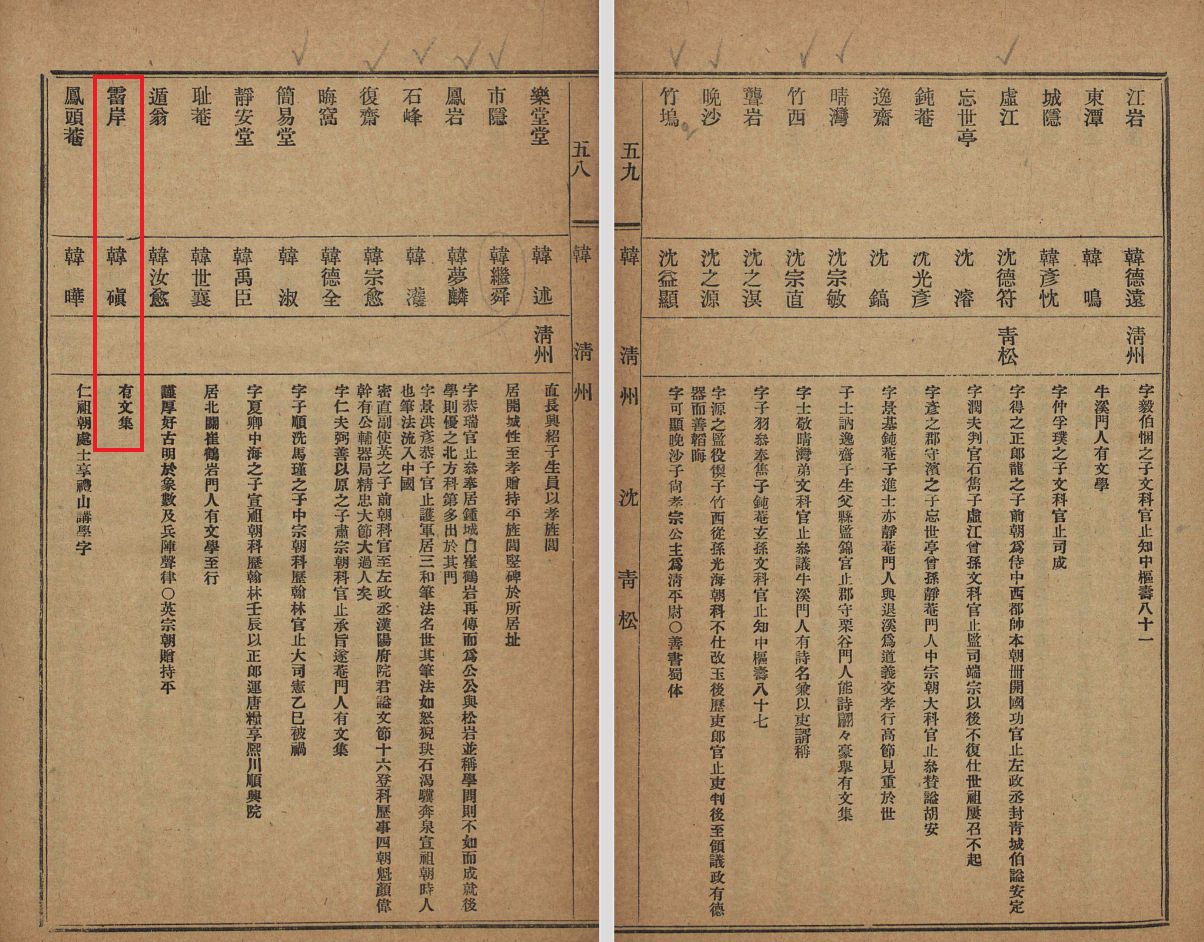 五八 韓 淸州
樂堂堂 韓述 淸州 直長興紹子生員以孝旌閭
市隱 韓繼舜 居開城性至孝贈持平旌閭竪碑於所居址
鳳岩 韓夢麟 字恭瑞官止參奉居鍾城門崔鶴岩再傳而爲公公與松岩並稱學問則不如而成就後
學則優之北方科第多出於其門
石峰 韓濩 字景洪彥恭子官止護軍居三和筆法名世其筆法如怒猊抉石渴驥奔泉宣祖朝時人
也筆法流入中國
復齋 韓宗愈 密直副使英之子前朝科官至左政丞漢陽府院君謚文節十六登科歷事四朝魁顏偉
幹有公輔器局精忠大節大過人矣
晦窩 韓德全 字仁夫弼善以原之子肅宗朝科官止承旨遂菴門人有文集
簡易堂 韓淑 字子順洗馬瑾之子中宗朝科歷翰林官止大司憲乙巳被禍
靜安堂 韓禹臣 字夏卿中海之子宣祖朝科歷翰林壬辰以正郎運唐糧享熙川順興院
耻菴 韓世襄 居北關崔鶴岩門人有文學至行
遁翁 韓汝愈 謹厚好古明於象數及兵陣聲律〇英宗朝贈持平
霅岸 韓禛 有文集
鳳頭菴 韓曄 仁祖朝處士享禮山講學字
五九 韓 淸州 沈 靑松
江岩 韓德遠 淸州 字毅伯悃之子文科官止知中樞壽八十一
東潭 韓鳴 牛溪門人有文學
城隱 韓彥忱 字仲孚璞之子文科官止司成
虛江 沈德符 靑松 字得之正郎龍之子前朝爲侍中西都帥本朝冊開國功官止左政丞封靑城伯謚安定
忘世亭 沈濬 字潤夫判官石雋子虛江曾孫文科官止監司端宗以後不復仕世祖屢召不起
鈍菴 沈光彥 字彥之郡守濱之子忘世亭曾孫靜菴門人中宗朝大科官止參贊謚胡安
逸齋 沈鎬 字景基鈍菴子進士亦靜菴門人與退溪爲道義交孝行高節見重於世
晴灣 沈宗敏 子士訥逸齋子生父縣監錦官止郡守栗谷門人能詩翩々豪擧有文集
竹西 沈宗直 字士敬晴灣弟文科官止參議牛溪門人有詩名兼以吏謂稱
聾岩 沈之溟 字子羽參奉雋子鈍菴玄孫文科官止知中樞壽八十七
晩沙 沈之源 字源之監役偰子竹西從孫光海朝科不仕改玉後歷吏郎官止吏判後至領議政有德
器而善韜晦
竹塢 沈益顯 字可顯晩沙子尙孝宗公主爲淸平尉〇善書蜀体